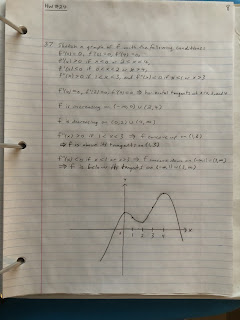 37 Sketch a graph of f with the following conditions
f'(0) = f'(2) = f'(4) = 0,
f'(x) > 0 if x < 0 or 2 < x < 4,
f'(x) < 0 if 0 < x < 2 or x > 4,
f''(x) > 0 if 1 < x < 3, and f''(x) < 0 if x < 1 or x > 3
horizontal tangents at x =
f is increasing on (-∞, 0) ∪ (2, 4)
f is decreasing on (0, 2) ∪ (4, ∞)
f''(x) > 0 if 1 < x < 3 ⇒ f concave up on (1, 3)
⇒ f is above the tangents on (1, 3)
f''(x) < 0 if x < 1 or x > 3 ⇒ f concave down on (-∞, 1) ∪ (3, ∞)
⇒ f is below the tangents on (-∞, 1) ∪ (3, ∞)
y
0 1 2 3 4 x